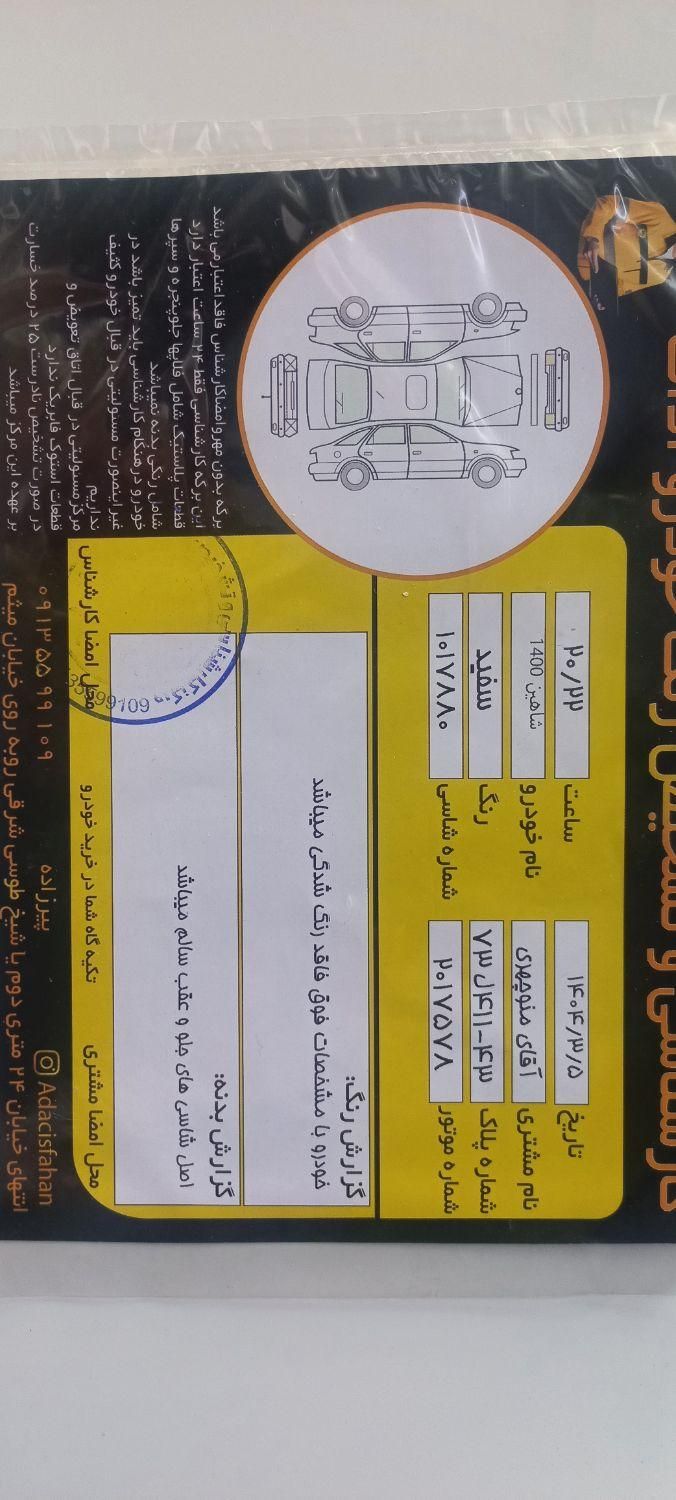 تاریخ ۱۴۰۴/۳/۵
ساعت ۲۰/۲۲
نام مشتری آقای منوچهری
نام خودرو شاهین 1400
شماره پلاک ۴۳-۴۱۱ل۷۳
رنگ سفید
شماره موتور ۲۰۱۷۵۷۸
شماره شاسی ۱۰۱۷۸۸۰
گزارش رنگ:
خودرو با مشخصات فوق فاقد رنگ شدگی میباشد
گزارش بدنه:
اصل شاسی های جلو و عقب سالم میباشد
محل امضا مشتری
تکیه گاه شما در خرید خودرو
محل امضا کارشناس
برگه بدون مهر و امضا کارشناس فاقد اعتبار می باشد
این برگه کارشناسی فقط ۲۴ ساعت اعتبار دارد
قطعات پلاستیک شامل قابها جلوپنجره و سپرها
شامل رنگی بدنه نمیباشد
خودرو در هنگام کارشناسی باید تمیز باشد در
غیر اینصورت مسئولیتی در قبال خودرو کثیف
نداریم
مرکز مسئولیتی در قبال اتاق تعویض و
قطعات استوک فابریک ندارد
در صورت تشخیص نادرست ۲۵ درصد خسارت
بر عهده این مرکز میباشد
Adacisfahan
پیرزاده
۰۹۱۳ ۵۵ ۹۹ ۱۰۹
انتهای خیابان ۲۴ متری دوم با شیخ طوسی شرقی روبه روی خیابان میثم